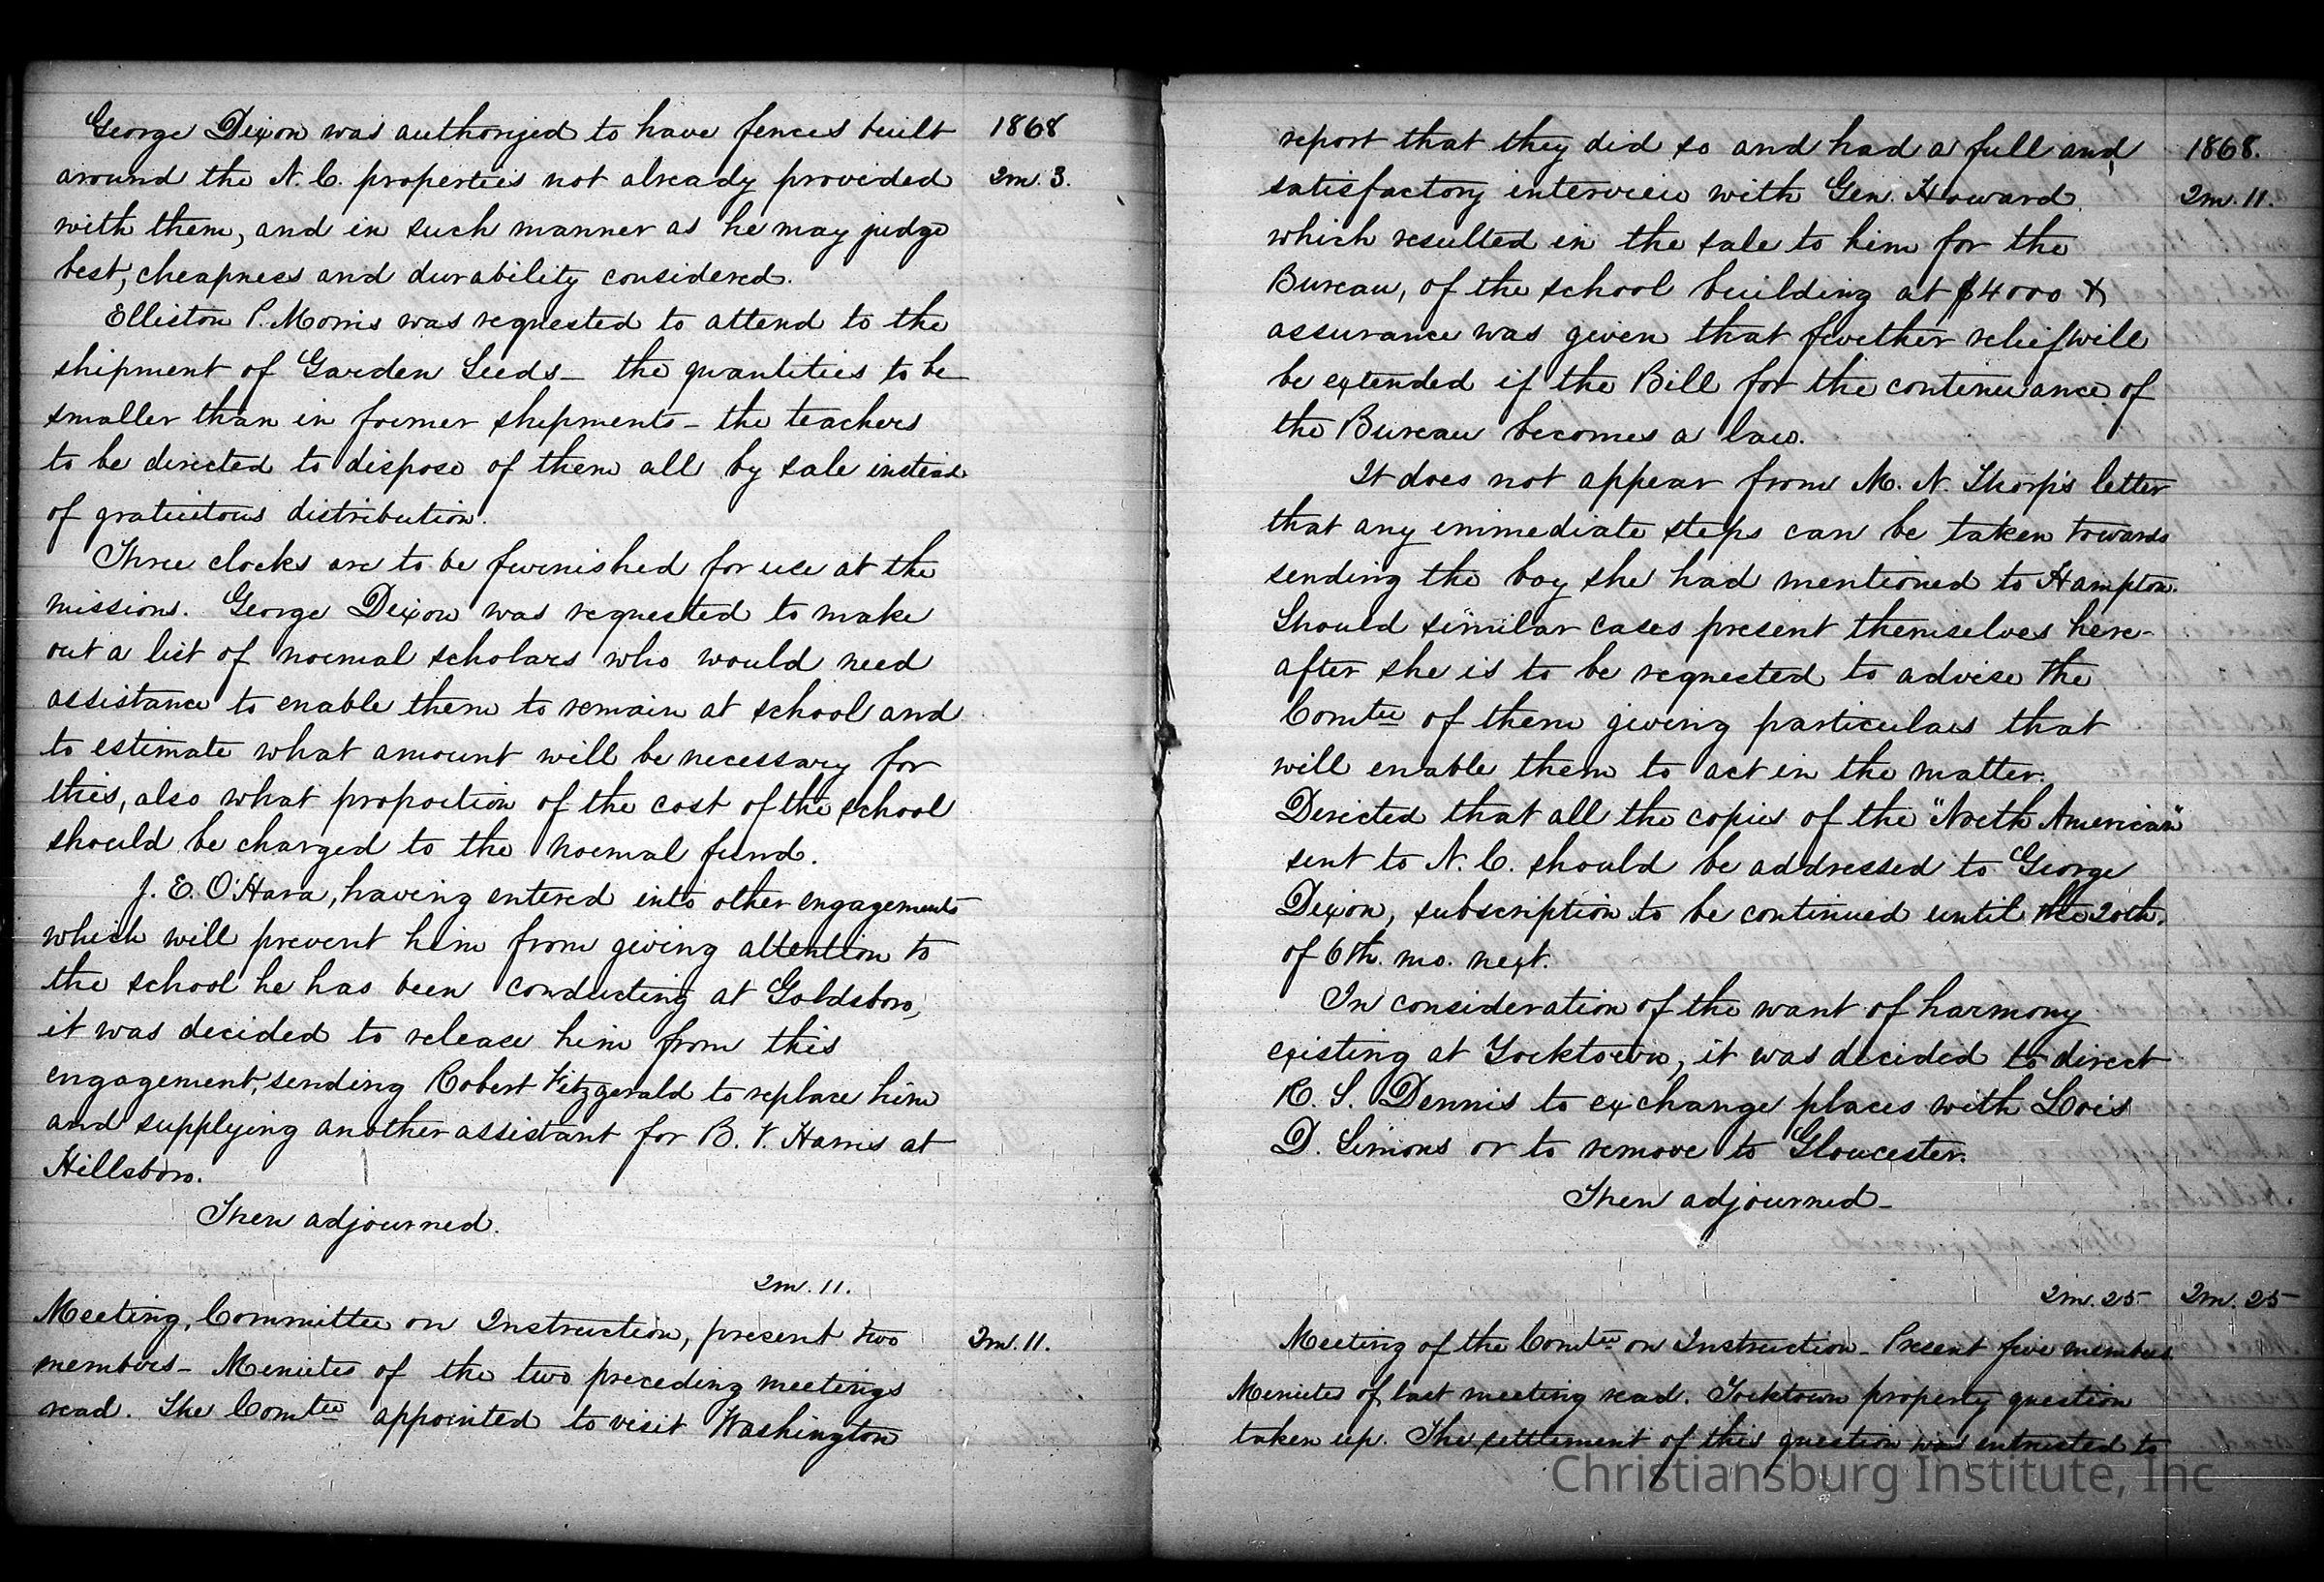 George Dixon was authorized to have fences built 1868
around the N. C. properties not already provided 2m. 3.
with them, and in such manner as he may judge
best, cheapness and durability considered.
Elliston P. Morris was requested to attend to the
shipment of Garden Seeds_ the quantities to be
smaller than in former shipments_ the teachers
to be directed to dispose of them all by sale instead
of gratuitous distribution.
Three clocks are to be furnished for use at the
missions. George Dixon was requested to make
out a list of normal scholars who would need
assistance to enable them to remain at school and
to estimate what amount will be necessary for
this, also what proportion of the cost of the school
should be charged to the normal fund.
J. E. O'Hara, having entered into other engagements
which will prevent him from giving attention to
the school he has been conducting at Goldsboro,
it was decided to release him from this
engagement, sending Robert Fitzgerald to replace him
and supplying another assistant for B. V. Harris at
Hillsboro.
Then adjourned.
2m. 11.
Meeting, Committee on Instruction, present two 2m. 11.
members_ Minutes of the two preceding meetings
read. The Comtee appointed to visit Washington
report that they did so and had a full and 1868.
satisfactory interview with Gen. Howard 2m. 11.
which resulted in the sale to him for the
Bureau, of the school building at $4000 &
assurance was given that further relief will
be extended if the Bill for the continuance of
the Bureau becomes a law.
It does not appear from M. N. Thorp's letter
that any immediate steps can be taken towards
sending the boy she had mentioned to Hampton.
Should similar cases present themselves here-
after she is to be requested to advise the
Comtee of them giving particulars that
will enable them to act in the matter.
Directed that all the copies of the "North American"
sent to N. C. should be addressed to George
Dixon, subscription to be continued until the 20th.
of 6th. mo. next.
In consideration of the want of harmony
existing at Yorktown, it was decided to direct
R. S. Dennis to exchange places with Lois
D. Simons or to remove to Gloucester.
Then adjourned_
2m. 25 2m. 25
Meeting of the Comtee on Instruction_ Present five members
Minutes of last meeting read. Yorktown property question
taken up. The settlement of this question was entrusted to
Christiansburg Institute, Inc